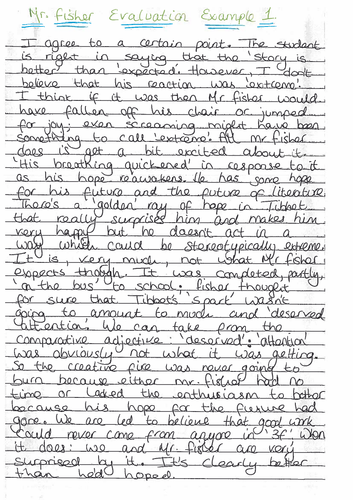 Mr. Fisher Evaluation Example 1.
I agree to a certain point. The student
is right in saying that the 'story is
better than expected. However, I don't
believe that his reaction was 'extreme'.
I think if it was then Mr Fisher would
have fallen off his chair or jumped
for joy: even screaming might have been
something to call 'extreme'. All mr fisher
does is get a bit excited about it.
'His breathing quickened' in response to it
as his hope reawakens. He has some hope
for his future and the future of literature.
There's a 'golden' ray of hope in Tibbot
that really surprises him and makes him
very happy but he doesn't act in a
way which could be stereotypically extreme.
It is, very much, not what Mr fisher
expects though. It was completed, partly,
'on the bus' to school. fisher thought
for sure that Tibbots 'spark' wasn't
going to amount to much and 'deserved
attention'. We can take from the
comparative adjective: 'deserved': 'attention'
was obviously not what it was getting.
So the creative fire was never going to
burn because either mr. fisher had no
time or lacked the enthusiasm to bother
because his hope for the future had
gone. We are led to believe that good work
could never come from anyone in '3F'. When
it does: we and Mr. fisher are very
surprised by it. It's clearly better
than he'd hoped.